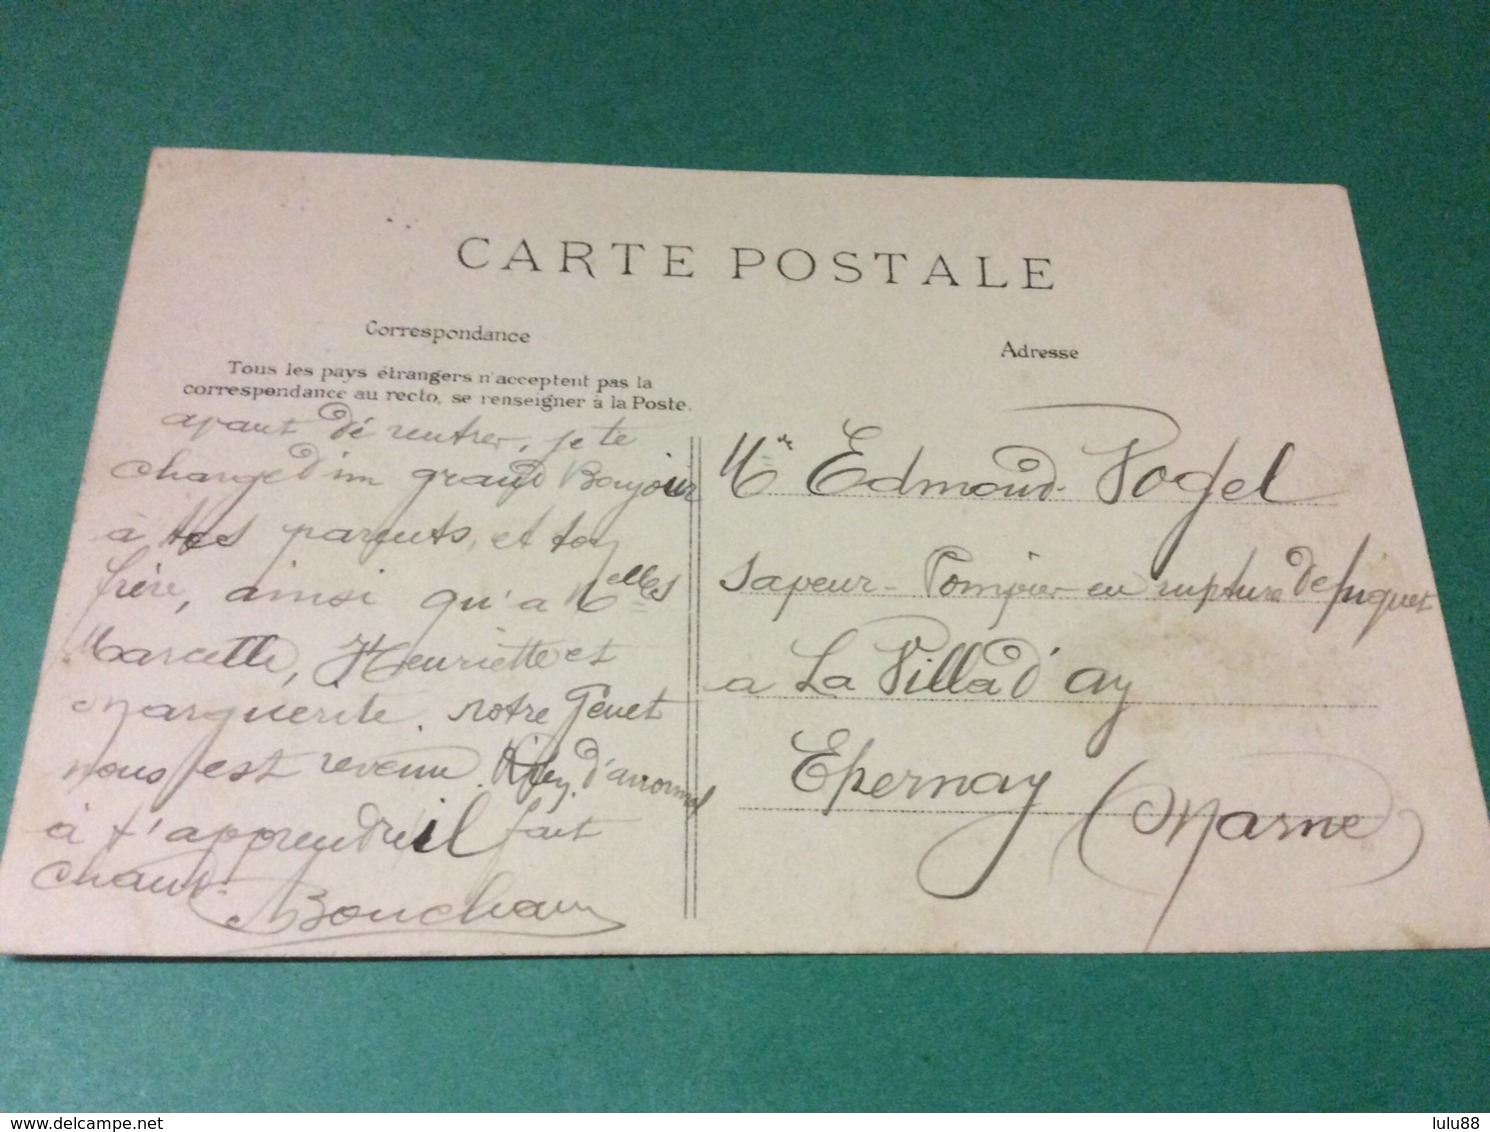 CARTE POSTALE
Correspondance
Tous les pays étrangers n'acceptent pas la
correspondance au recto, se renseigner à la Poste.
avant dé rentrer, je te
charge d'un grand Bonjour
à tes parents, et ton
frère, ainsi qu'a Melles
Marcelle, Henriette et
Marguerite. notre Génet
nous est revenu. Rien d'anormal
à t'apprendre il fait
chaud.
Bouchan
Adresse
Mr Edmond Vogel
Sapeur-Pompier en rupture de piquet
a La Villa d'ay
Epernay (Marne)
delcampe.net
lulu88